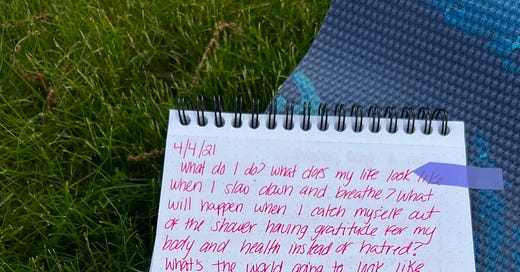 4/4/21
What do I do? What does my life look like
when I slow down and breathe? What
will happen when I catch myself out
of the shower having gratitude for my
body and health instead of hatred?
What's the world going to look like